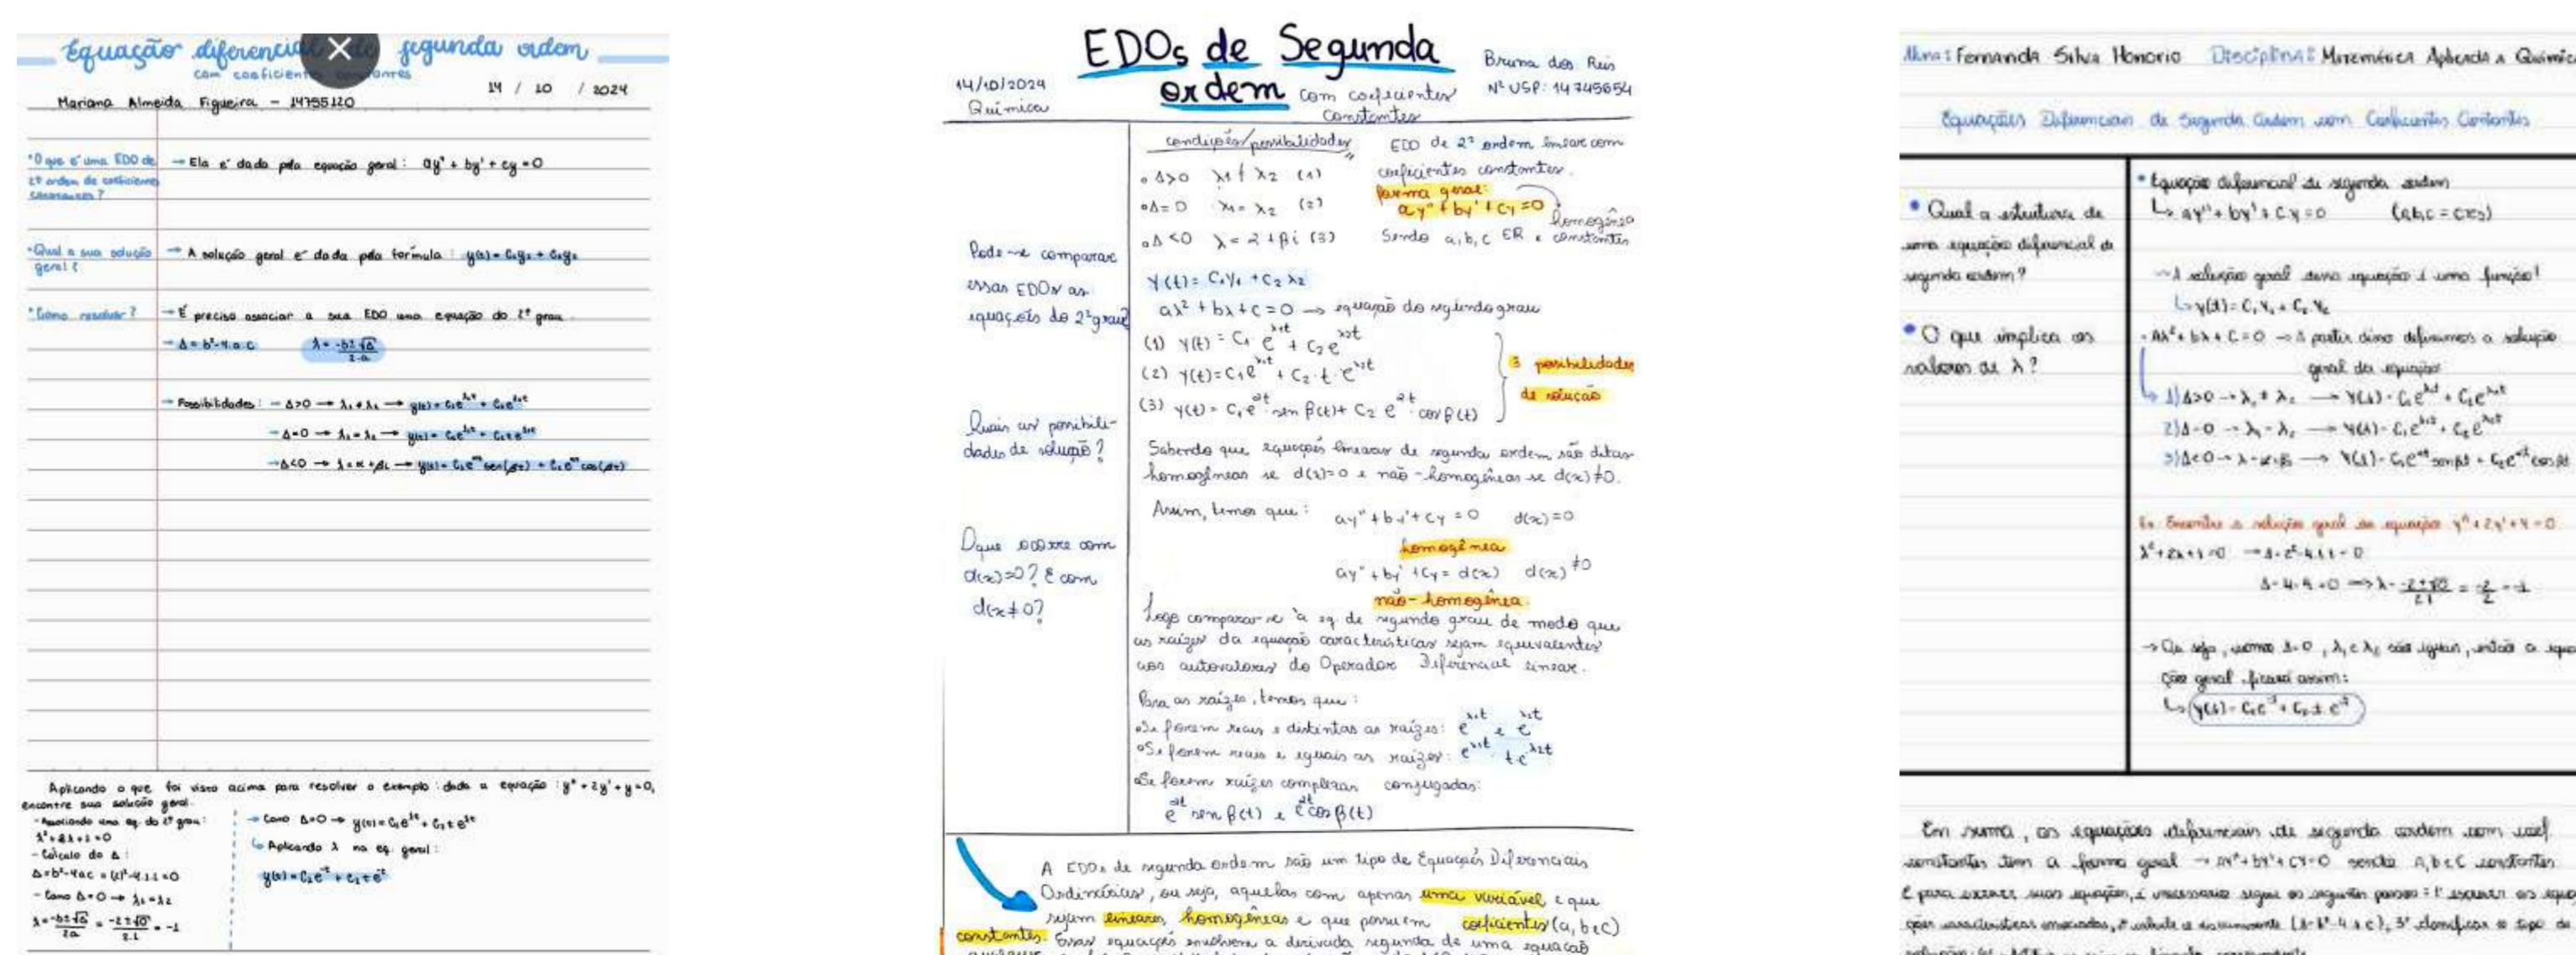 Equação diferencial de segunda ordem
com coeficientes constantes
14 / 10 / 2024
Mariana Almeida Figueira - 14755120
• O que é uma EDO de
2ª ordem de coeficientes
constantes?
→ Ela é dada pela equação geral: ay" + by' + cy = 0
• Qual a sua solução
geral?
→ A solução geral é dada pela fórmula: y(t) = C₁y₁ + C₂y₂
• Como resolver?
→ É preciso associar a sua EDO uma equação do 2º grau
→ Δ = b²-4.a.c λ = -b±√Δ / 2.a
→ Possibilidades: → Δ>0 → λ₁ ≠ λ₂ → y(t) = C₁e^λ₁t + C₂e^λ₂t
→ Δ=0 → λ₁ = λ₂ → y(t) = C₁e^λ₁t + C₂te^λ₂t
→ Δ<0 → λ = α + βi → y(t) = C₁e^αt sen(βt) + C₂e^αt cos(βt)
Aplicando o que foi visto acima para resolver o exemplo: dada a equação: y" + 2y' + y = 0,
encontre sua solução geral.
- Associando uma eq. do 2º grau:
λ² + 2λ + 1 = 0
- Cálculo do Δ:
Δ = b²-4ac = (2)²-4.1.1 = 0
- Como Δ=0 → λ₁ = λ₂
λ = -b±√Δ / 2a = -2±√0 / 2.1 = -1
→ Como Δ=0 → y(t) = C₁e^λt + C₂te^λt
↳ Aplicando λ na eq. geral:
y(t) = C₁e^-t + C₂te^-t
EDOs de Segunda
ordem com coeficientes
constantes
14/10/2024
Química
Bruna dos Reis
Nº USP: 14745654
Pode-se comparar
essas EDOs as
equações do 2º grau?
Quais as possibili-
dades de solução?
O que ocorre com
d(x)=0? E com
d(x≠0?
condições/possibilidades
• Δ>0 λ1 ≠ λ2 (1)
• Δ=0 λ1 = λ2 (2)
• Δ<0 λ = 2 + βi (3)
EDO de 2ª ordem linear com
coeficientes constantes.
forma geral:
ay" + by' + cy = 0
homogênea
Sendo a, b, c ∈R e constantes
y(t) = C₁y₁ + C₂ λ2
aλ² + bλ + c = 0 → equação do segundo grau
(1) y(t) = C₁ e^λ1t + C₂ e^λ2t
(2) y(t) = C₁e^λ1t + C₂ · t · e^λ1t
(3) y(t) = C₁e^2t · sen β(t) + C₂ e^2t · cos β(t)
3 possibilidades
de solução
Sabendo que equações lineares de segunda ordem são ditas
homogêneas se d(x)=0 e não-homogêneas se d(x)≠0.
Assim, temos que: ay" + by' + cy = 0 d(x)=0
homogênea
ay" + by' + cy = d(x) d(x) ≠0
não-homogênea.
Logo compara-se à eq. de segundo grau de modo que
as raízes da equação características sejam equivalentes
aos autovalores do Operador Diferencial linear.
Para as raízes, temos que:
• Se forem reais e distintas as raízes: e^λ1t e e^λ2t
• Se forem reais e iguais as raízes: e^λ1t · te^λ2t
• Se forem raízes complexas conjugadas:
e^2t sen β(t) e e^2t cos β(t)
A EDOs de segunda ordem são um tipo de Equações Diferenciais
Ordinárias, ou seja, aquelas com apenas uma variável e que
sejam lineares, homogêneas e que possuem coeficientes (a, b e c)
constantes. Essas equações envolvem a derivada segunda de uma equação
Aluna: Fernanda Silva Honorio Disciplina: Matemática Aplicada a Química
Equações Diferenciais de Segunda Ordem com Coeficientes Constantes
• Qual a estrutura de
uma equação diferencial de
segunda ordem?
• O que implica os
valores de λ?
• Equação diferencial de segunda ordem
↳ ay" + by' + cy = 0 (a,b,c = ctes)
→ A solução geral dessa equação é uma função!
↳ y(t) = C₁Y₁ + C₂Y₂
• Aλ² + bλ + C = 0 → A partir disso definimos a solução
geral da equação
1) Δ>0 → λ₁ ≠ λ₂ → Y(t) = C₁e^λ₁t + C₂e^λ₂t
2) Δ=0 → λ₁ = λ₂ → Y(t) = C₁e^λ₁t + C₂e^λ₂t
3) Δ<0 → λ = α+βi → Y(t) = C₁e^αt senβt + C₂e^αt cosβt
Ex: Encontre a solução geral da equação y" + 2y' + y = 0
λ² + 2λ + 1 = 0 → Δ = 2² - 4.1.1 = 0
Δ = 4 - 4 = 0 → λ = -2±√0 / 2.1 = -2/2 = -1
→ Ou seja, como Δ=0, λ₁ e λ₂ são iguais, então a equa
ção geral ficará assim:
↳ y(t) = C₁e^-t + C₂te^-t
Em suma, as equações diferenciais de segunda ordem com coef.
constantes tem a forma geral → ay" + by' + cy = 0 sendo A, b e C constantes
É para seguir os seguintes passos: 1º escrever as equa
ções características associadas, 2º calcule o discriminante (Δ = b² - 4ac), 3º classificar o tipo de